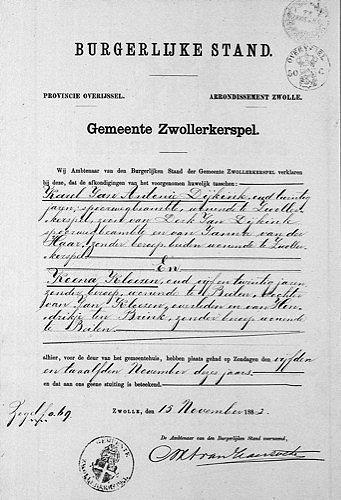 OVERYSSEL
50 C
BURGERLIJKE STAND.
PROVINCIE OVERIJSSEL. ARRONDISSEMENT ZWOLLE.
Gemeente Zwollerkerspel.
Wij Ambtenaar van den Burgerlijken Stand der Gemeente ZWOLLERKERSPEL verklaren
bij deze, dat de afkondigingen van het voorgenomen huwelijk tusschen:
Karel Jan Antonie Dijkink, oud twintig
jaren, spoorwegbeambte, wonende te Zwoller-
kerspel, zoon van Derk Jan Dijkink
spoorwegbeambte en van Janna van der
Haar, zonder beroep, beiden wonende te Zwoller-
kerspel
En
Roena Kleesen, oud vijf en twintig jaren,
zonder beroep, wonende te Balen, dochter
van Jan Kleesen, overleden en van Hen-
drikje ten Brink, zonder beroep wonende
te Balen
alhier, voor de deur van het gemeentehuis, hebben plaats gehad op Zondagen den vijfden
en twaalfden November dezes jaars
en dat aan ons geene stuiting is beteekend.
Zegel f 0.69
ZWOLLE, den 15 November 1882.
De Ambtenaar van den Burgerlijken Stand voornoemd,
GEMEENTE